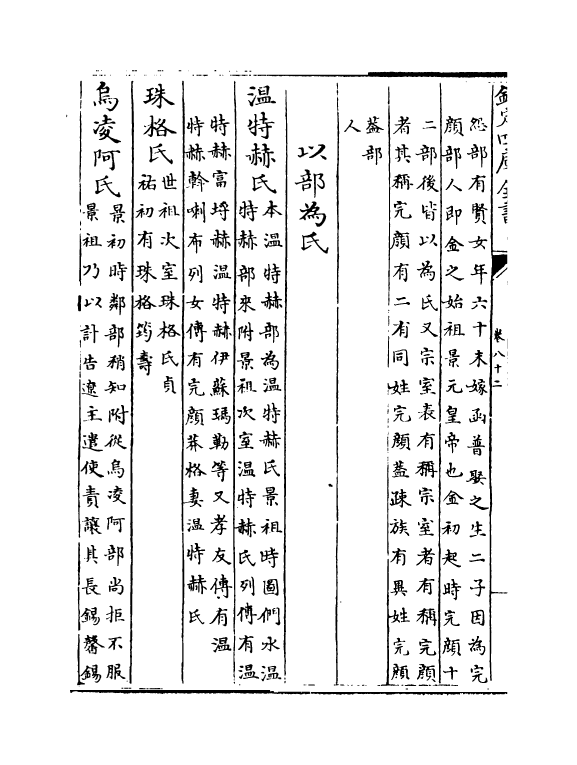 欽定四庫全書 卷八十二
怨部有賢女年六十未嫁函普娶之生二子因為完
顔部人即金之始祖景元皇帝也金初起時完顔十
二部後皆以為氏又宗室表有稱宗室者有稱完顔
者其稱完顔有二有同姓完顔蓋疎族有異姓完顔
蓋部
人
以部為氏
温特赫氏
本温特赫部為温特赫氏景祖時圖們水温
特赫部來附景祖次室温特赫氏列傳有温
特赫富埒赫温特赫伊蘇瑪勒等又孝友傳有温
特赫斡喇布列女傳有完顔莽格妻温特赫氏
珠格氏
世祖次室珠格氏貞
祐初有珠格筠壽
烏凌阿氏
景初時鄰部稍知附從烏凌阿部尚拒不服
景祖乃以計告遼主遣使責讓其長錫馨錫